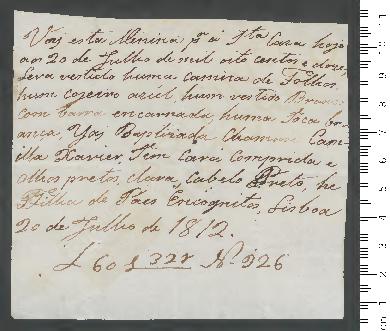 Vai esta Menina pª a Sta Caza hoje
aos 20 de Julho de mil oito centos e doze,
Leva vestido huma camiza de Folhos
hum coeiro azul, hum vestido Branco
com barra encarnada huma Toca br
anca, Vai Baptizada Chamase Cami
lla Xavier, Tem Cara comprida e
olhos pretos, clara Cabelo Preto, he
Filha de Pais Encognitos, Lisboa
20 de Julho de 1812.
L 60 f 322 Nº 926